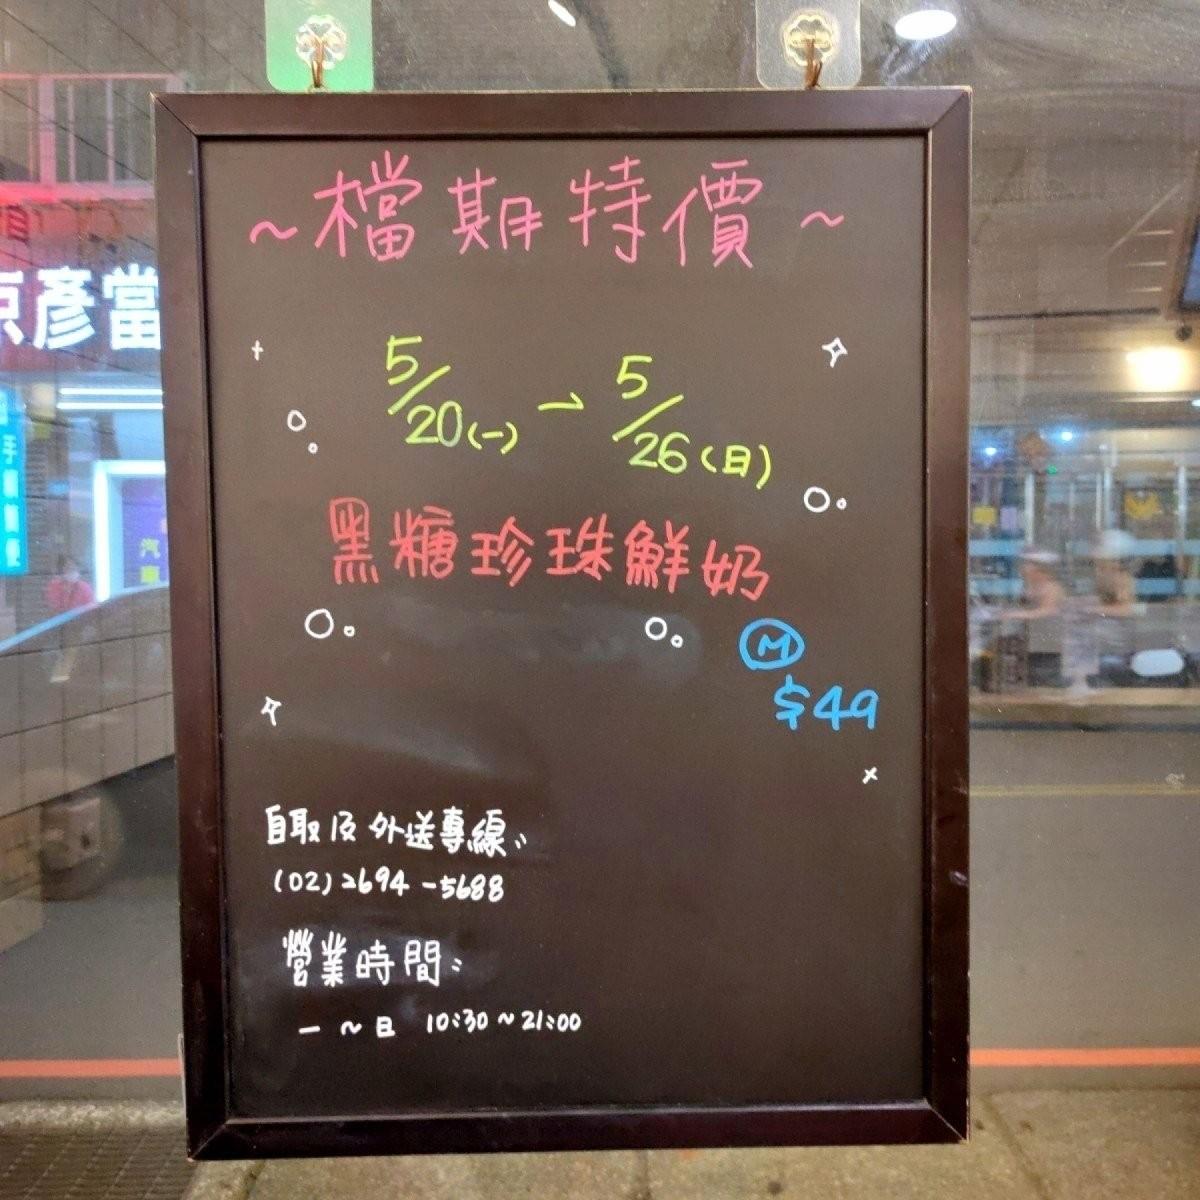 ~檔期特價~
5/20(一) → 5/26(日)
黑糖珍珠鮮奶
M
$49
自取及外送專線:
(02)2694-5688
營業時間:
一~日 10:30~21:00
彥當
手
汽